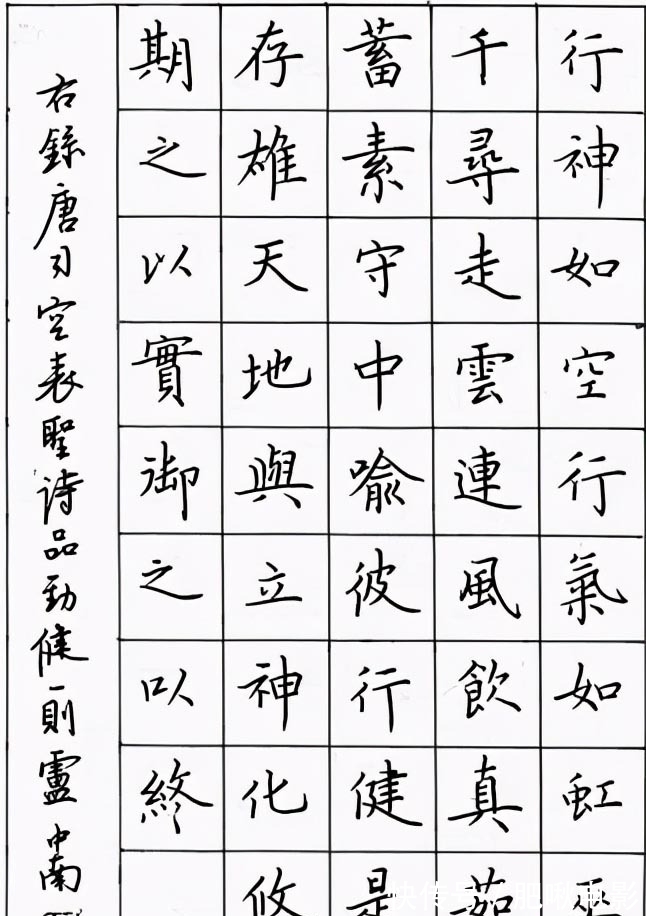 行神如空行氣如虹巫
千尋走雲連風飲真茹
蓄素守中喻彼行健是
存雄天地與立神化攸
期之以實御之以終
右錄唐司空表聖詩品勁健一則盧中南
快传号